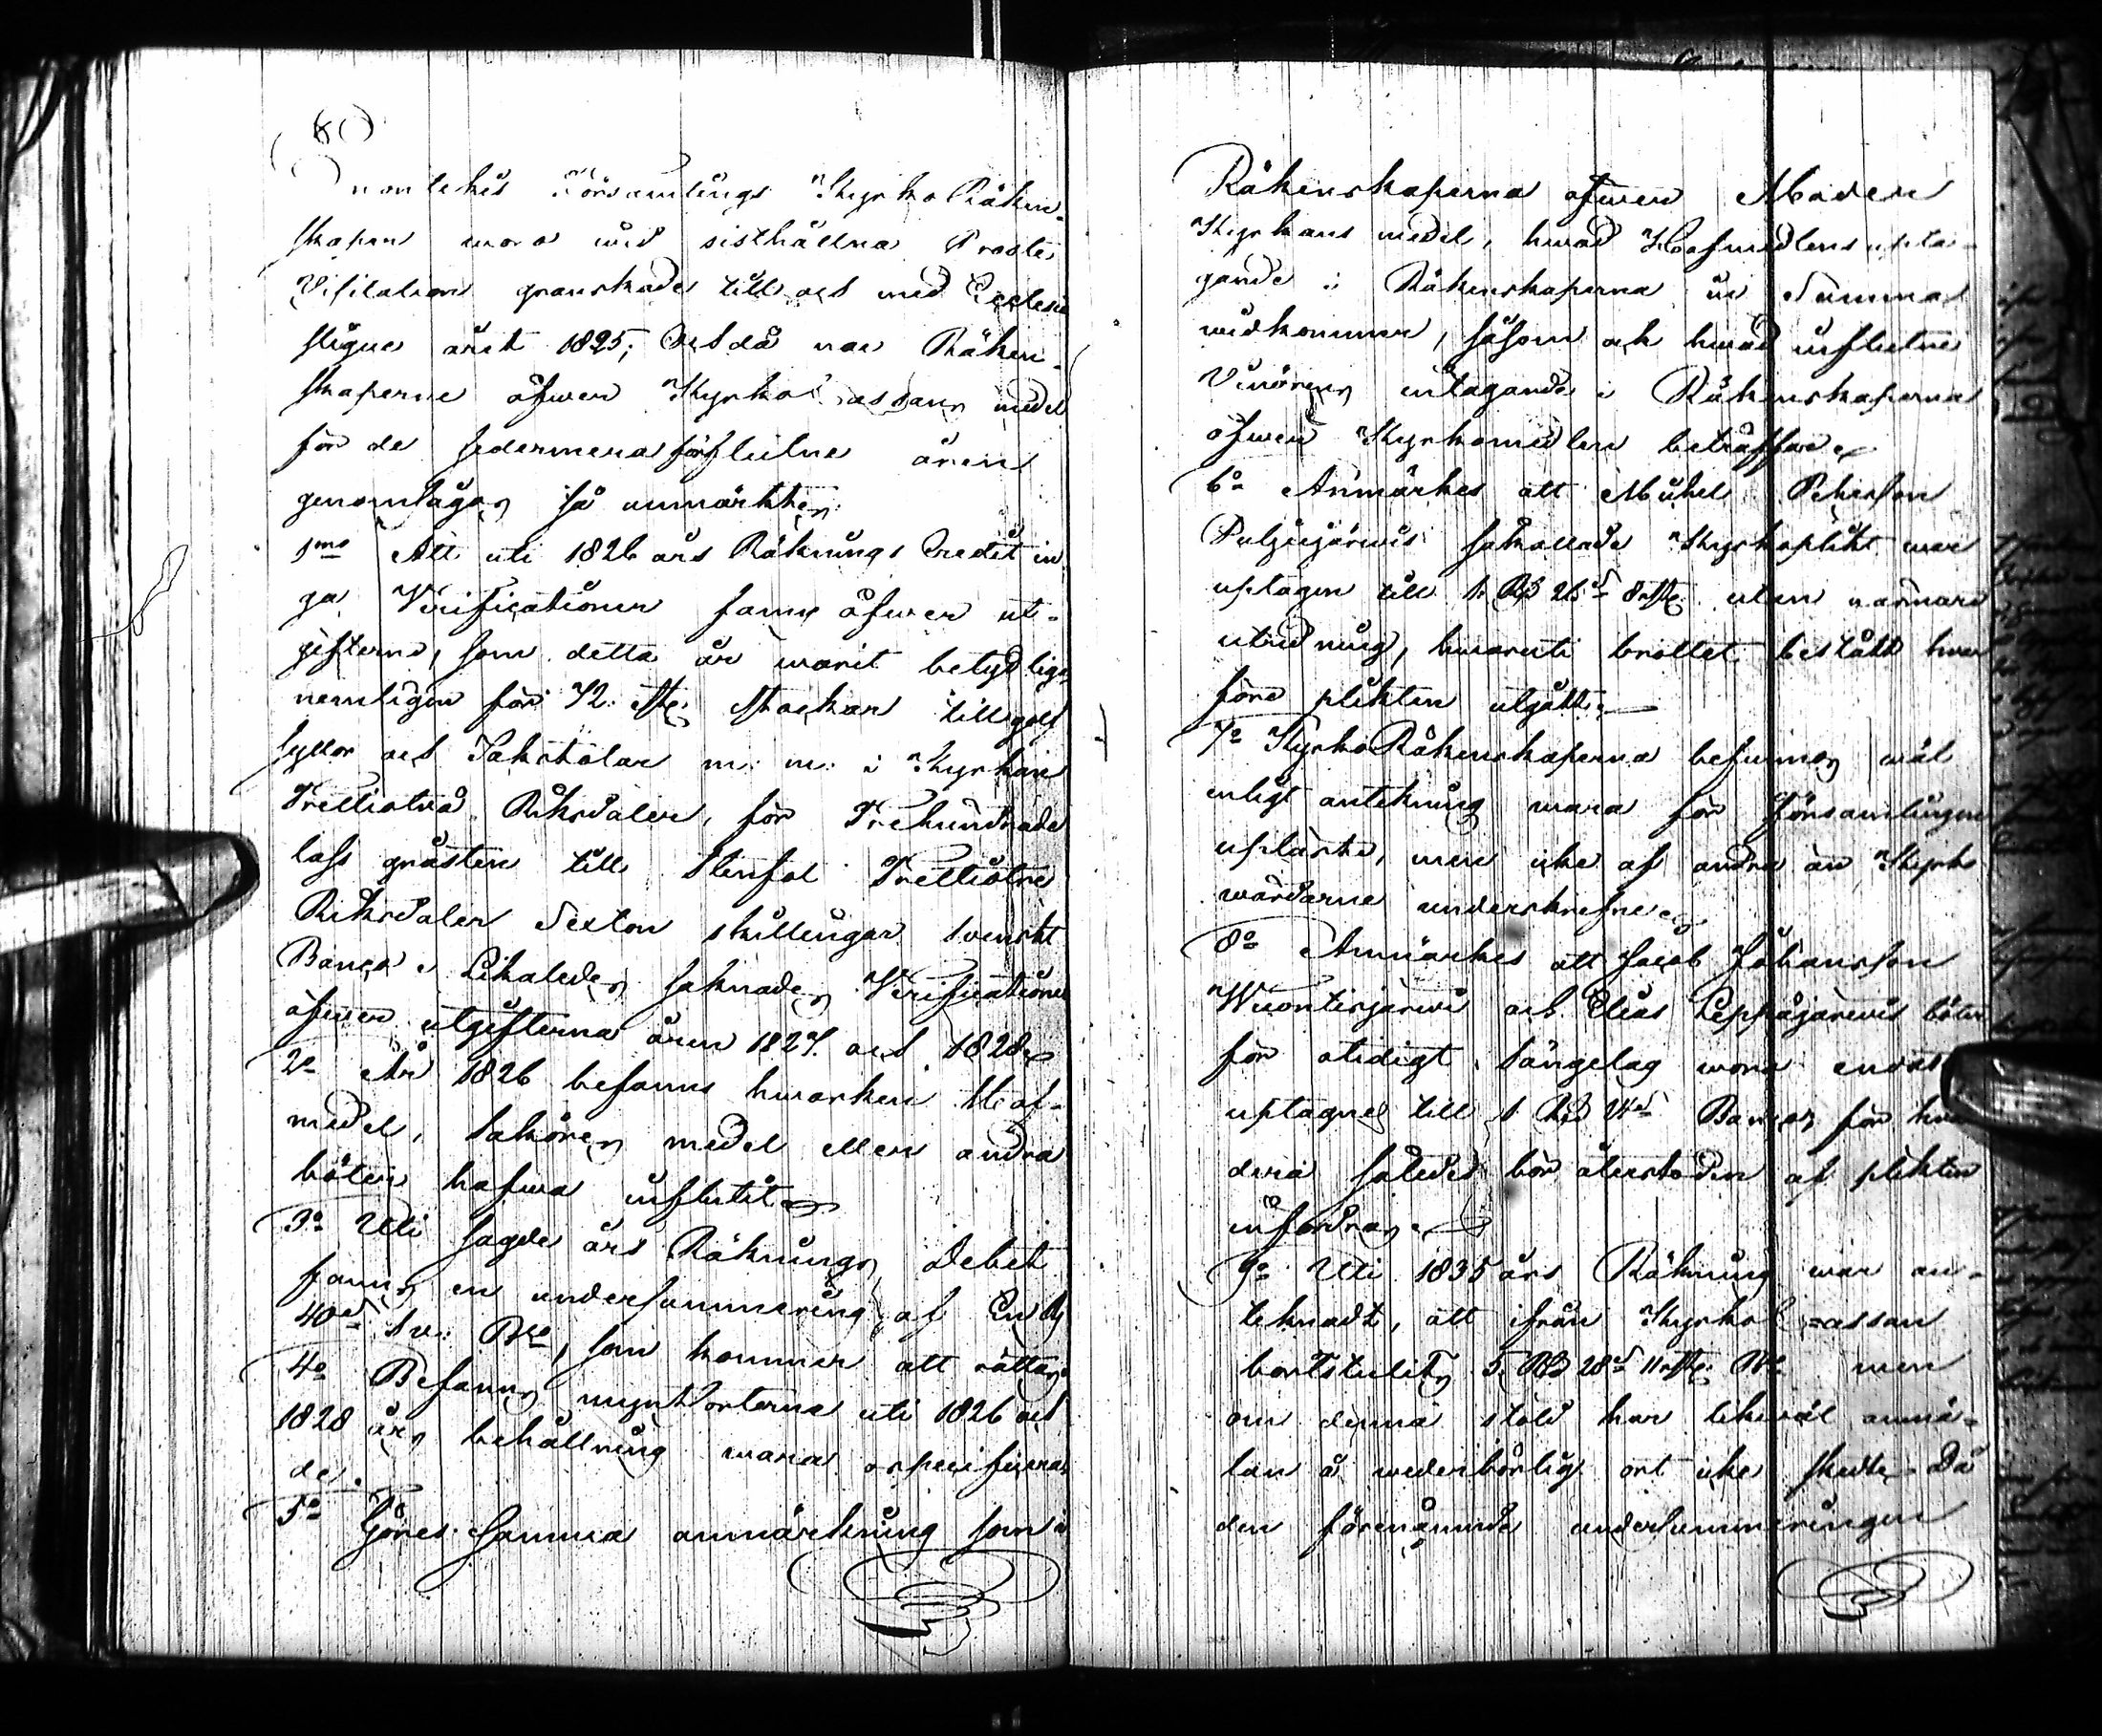 Enontekis Församlings Kyrko Räken-
skaper woro wid sisthållna Prosts
Visitation granskade till och med Ecclesia
stique året 1825; Och då nu Räken-
skaperne öfwer Kyrko Cassans medel
för de sedermera förflutne åren
genomlågos så anmärktes
1mo Att uti 1826 års Räknings Credit in
ga Verificationer fanns öfwer ut-
gifterne, som detta år warit betydliga
nemligen för 72 st. stockar till golf
syllor och Takstolar m: m: i Kyrkan
Trettiotvå Riksdaler, för Trehundrade
lass gråsten till Stenfot Trettiotre
Riksdaler Sexton skillingar Svenskt
Banco. Likaledes saknades Verificationer
öfwer utgifterna åren 1827. och 1828.
2o År 1826 befanns hwarken Haf-
medel, Saköres medel eller andra
böter hafwa influtit
3o Uti sagde års Räknings Debet
fanns en undersummering af En Rd
40 s Sv: Bco, som kommer att rättas.
4o Befanns myntsorterna uti 1826 och
1828 års behållning wara ospecificera
de.
5o Göres samma anmärkning som i
Räkenskaperna öfwer Moder
Kyrkans medel, hwad Hafmedlens upta-
gande i Räkenskaperna in Summa
widkommer, såsom ock hwad influtne
Vinörens intagande i Räkenskaperna
öfwer Kyrkomedlen beträffar
6o Anmärkes att Michel Pehrsson
Palojärwis så kallade Kyrkoplikt war
uptagen till 1. Rd 26 s 8 rst. utan närmare
utredning, hwaruti brottet bestått hwar
före plikten utgått.
7o Kyrko Räkenskaperna befunnos wäl
enligt antekning wara för Församlingen
uplästa, men icke af andra än Kyrko
wärdarne underskrefne.
8o Anmärkes att Jacob Johansson
Wuontisjärwi och Elias Leppäjärwis böter
för otidigt sängelag woro endast
uptagne till 1. Rd 24 s Banco, för hwar
dera således bör återstoden af plikten
infordras.
9o Uti 1835 års Räkning war an-
teknadt, att ifrån Kyrko Cassan
bortstulits 5 Rd 28 s 11 rst. Bco men
om denna stöld har likwäl anmä-
lan å wederbörlig ort icke skedt. Då
den förenämnda undersummeringen